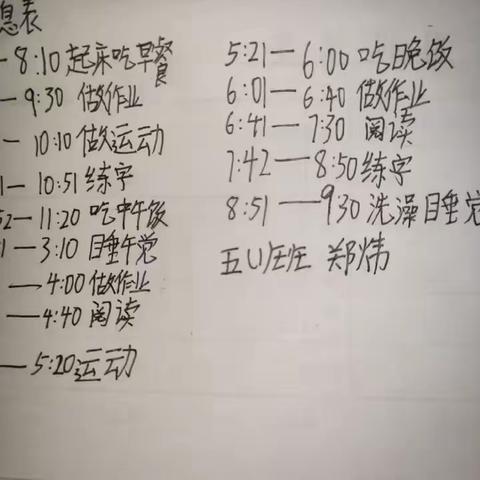 息表
—8:10起床吃早餐
—9:30 做作业
—10:10做运动
1—10:51练字
52—11:20吃中午饭
1—3:10睡午觉
—4:00做作业
—4:40阅读
—5:20运动
5:21—6:00吃晚饭
6:01—6:40做作业
6:41—7:30 阅读
7:42—8:50练字
8:51—930洗澡睡觉
五(1)班 郑炜